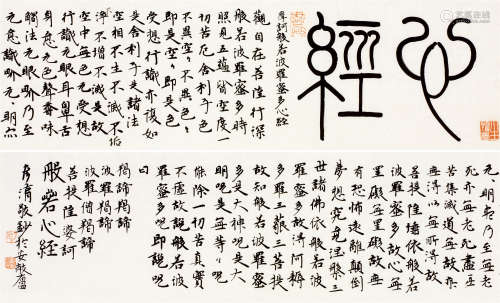 心經
摩訶般若波羅蜜多心經
觀自在菩薩行深
般若波羅蜜多時
照見五蘊皆空度一
切苦厄舍利子色
不異空空不異色
色即是空空即是色
受想行識亦復如
是舍利子是諸法
空相不生不滅不垢
不淨不增不減是故
空中無色无受想
行識无眼耳鼻舌
身意无色聲香味
觸法无眼界乃至
无意識界无無明亦
无無明盡乃至無老
死亦無老死盡無
苦集滅道無智亦
無得以無所得故
菩提薩埵依般若
波羅蜜多故心無
罣礙無罣礙故無
有恐怖遠離顛倒
夢想究竟涅槃三
世諸佛依般若波
羅蜜多故得阿耨
多羅三藐三菩提
故知般若波羅蜜
多是大神咒是大
明咒是無等等咒能
除一切苦真實
不虛故說般若波
羅蜜多咒即說咒
曰
揭諦揭諦
波羅揭諦
波羅僧揭諦
菩提薩婆訶
般若心經